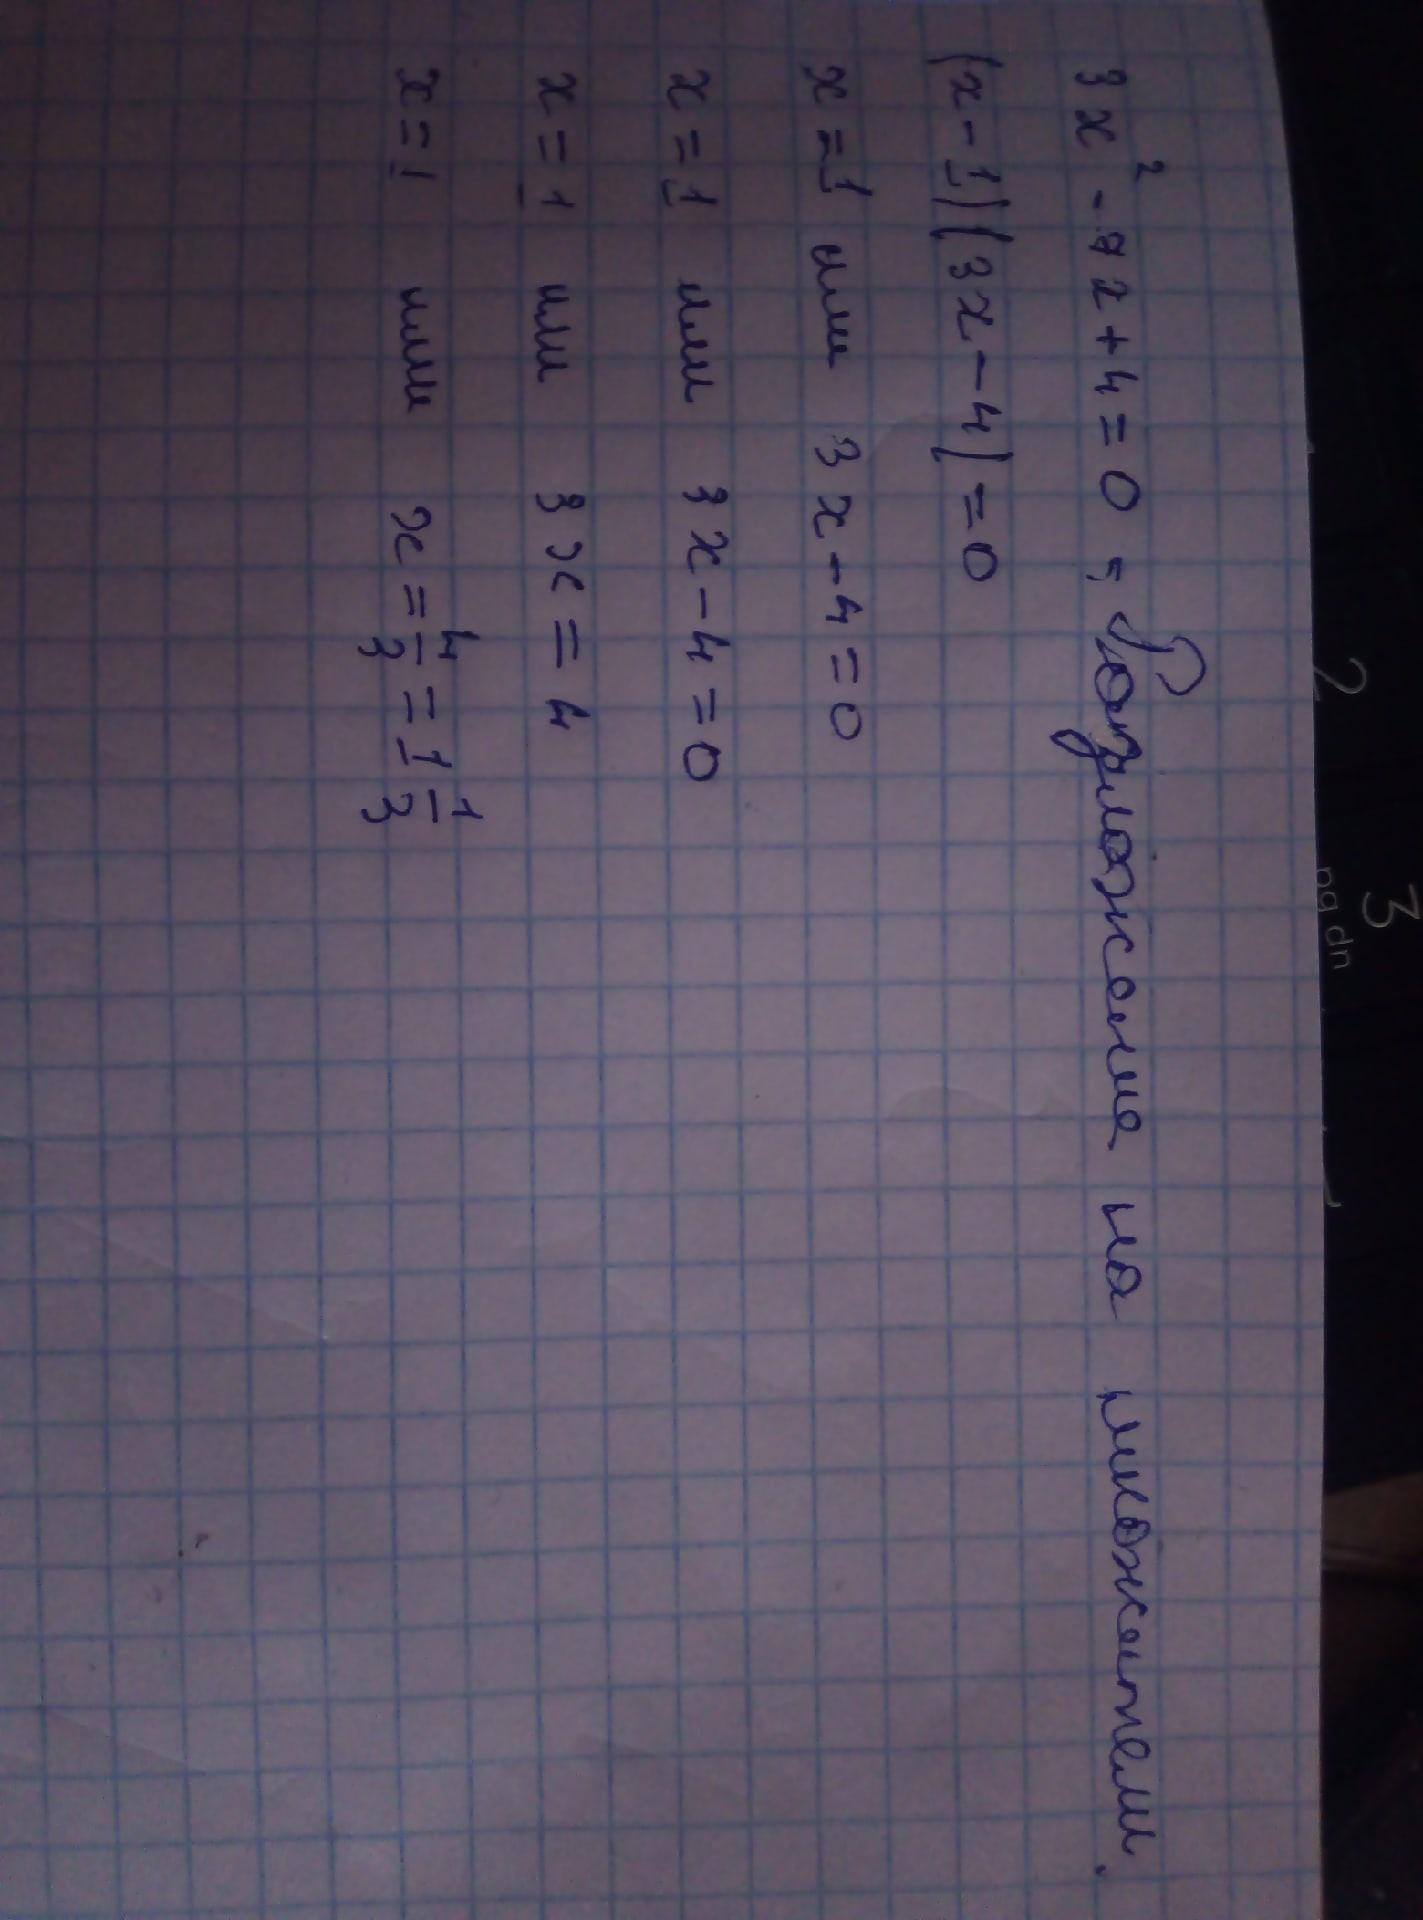 3x² - 7x + 4 = 0 ; Разложение на множители.
(x - 1)(3x - 4) = 0
x = 1 или 3x - 4 = 0
x = 1 или 3x - 4 = 0
x = 1 или 3x = 4
x = 1 или x = 4/3 = 1 1/3
2
3
pg dn